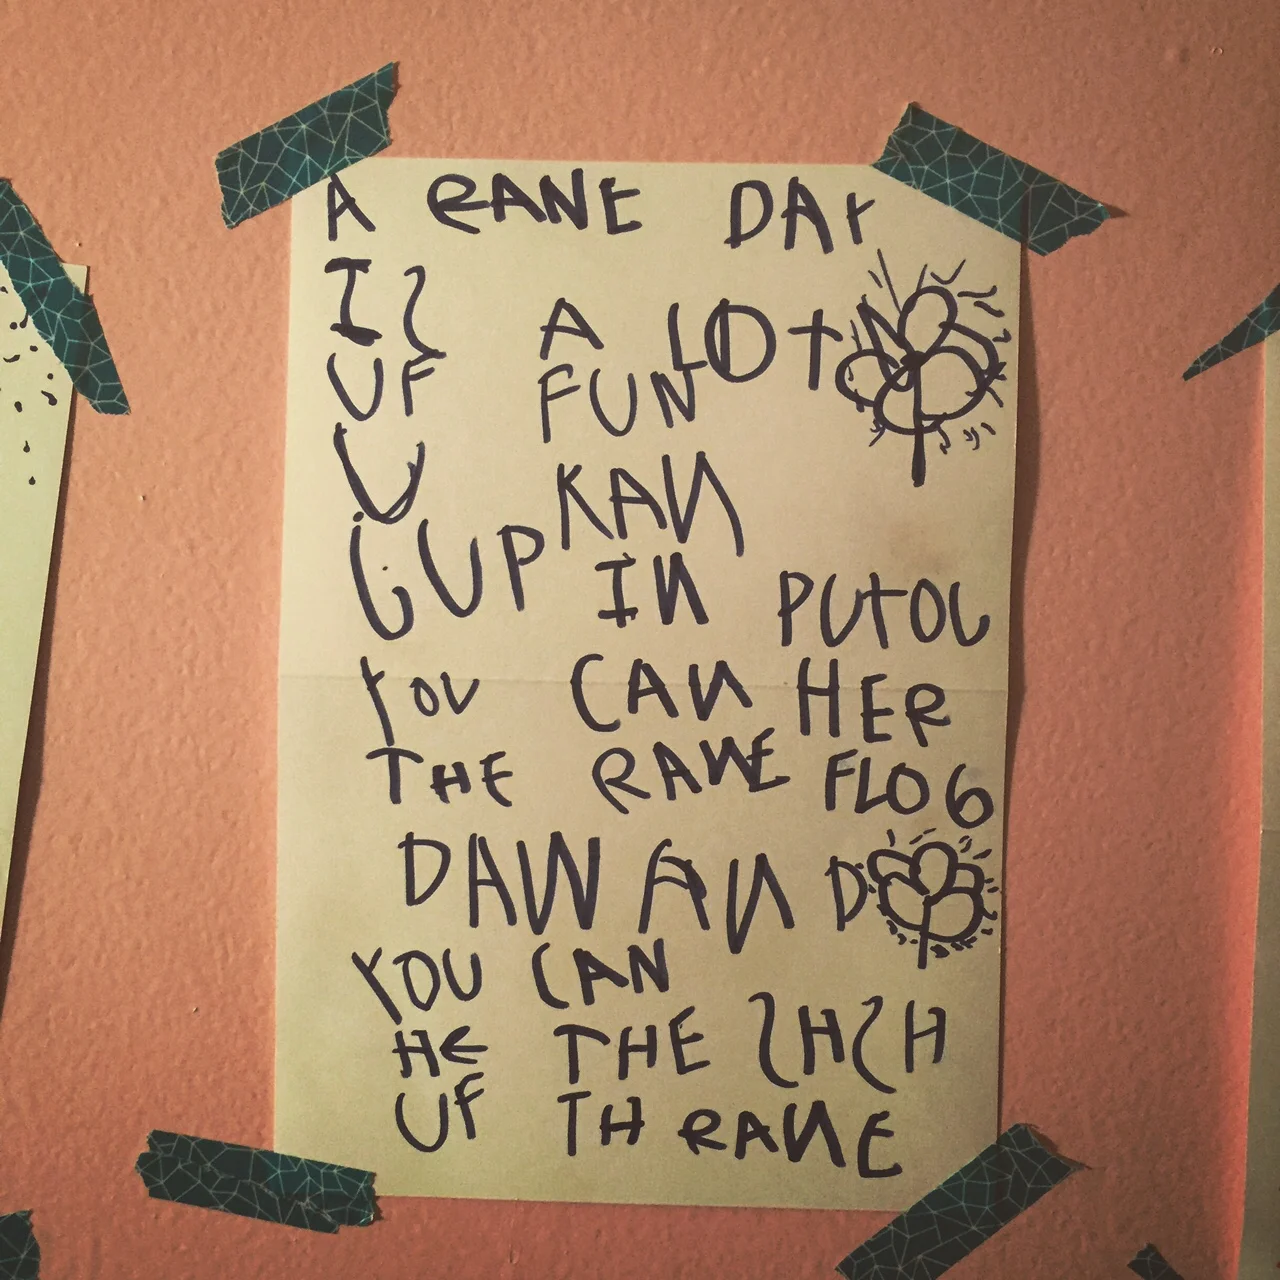 A RANE DAY
IS A LOT
UF FUN
U KAN
GUP IN PUTOL
YOU CAN HER
THE RANE FLOG
DAWN AND
YOU CAN
HE THE SHSH
UF TH RANE